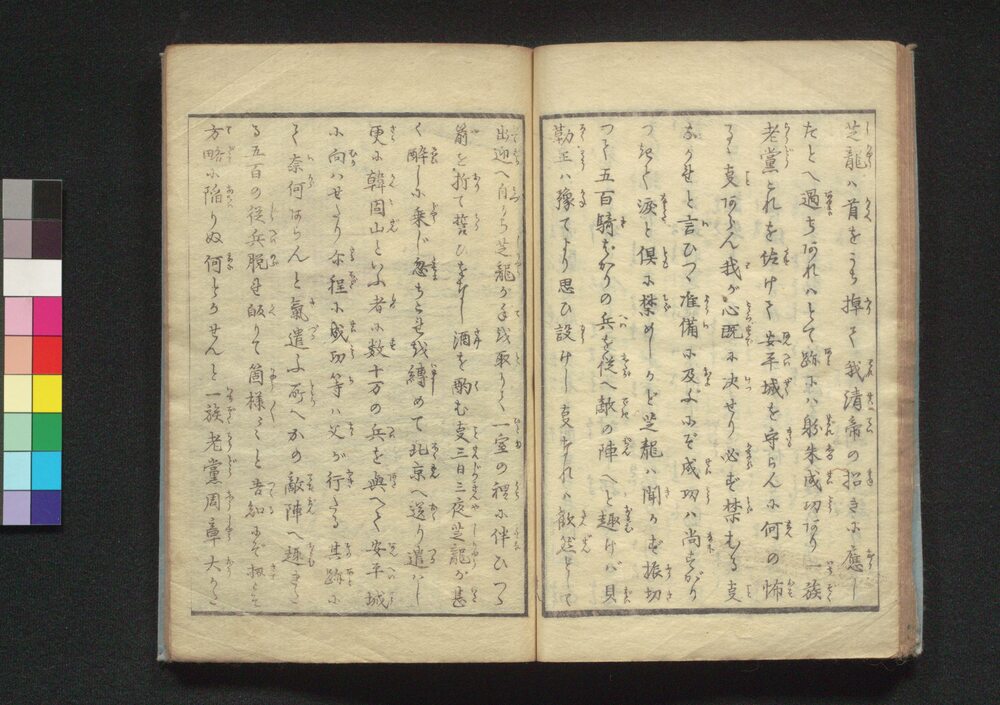 芝龍ハ首をうち掉て我清帝の招きに應し
たとへ過ちあれバとて跡にハ躮朱成功あり一族
老黨これを佐けて安平城を守らんに何の怖
るゝ事あらん我が心既に决せり必ず禁むる事
なかれと言ひつゝ准備に及ぶにぞ成功ハ尚すがり
つきて涙と倶に禁めしかど芝龍ハ聞かず振切
つて五百騎ばかりの兵を従へ敵の陣へと趣けバ貝
勒王ハ豫てより思ひ設けし事なれバ歓然として
出迎へ自から芝龍が手を取りて一室の裡に伴ひつゝ
箭を折て誓ひをなし酒を酌む事三日三夜芝龍が甚
く醉しに乗じ忽ちこれを縛めて北京へ送り遣ハし
更に韓固山といふ者に数十万の兵を與へて安平城
に向ハせたり尓程に成功等ハ父が行たる其跡に
て奈何あらんと氣遣ふ所へかの敵陣へ趣きた
る五百の従兵脱れ皈りて箇様々々と告知にぞ扨こそ
方略に陥りぬ何とかせんと一族老黨周章大かた